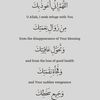 اللَّهُمَّ إِنِّي أَعُوذُ بِكَ
O Allah, I seek refuge with You
مِنْ زَوَالِ نِعْمَتِكَ
from the disappearance of Your blessing
وَتَحَوُّلِ عَافِيَتِكَ
and from the loss of good health
وَفُجَاءَةِ نِقْمَتِكَ
and Your sudden vengeance
وَجَمِيعِ سَخَطِكَ